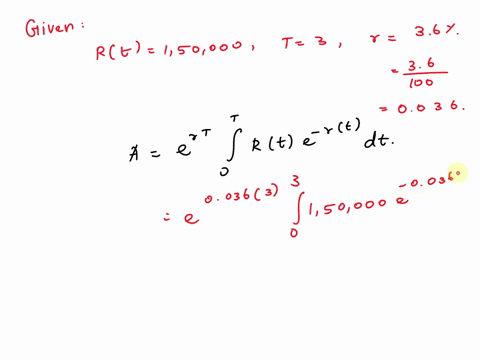 Given:
R(t) = 1,50,000, T = 3, r = 3.6%.
= 3.6/100
= 0.036.
A = e^{rT} ∫_0^T R(t) e^{-r(t)} dt.
= e^{0.036(3)} ∫_0^3 1,50,000 e^{-0.036